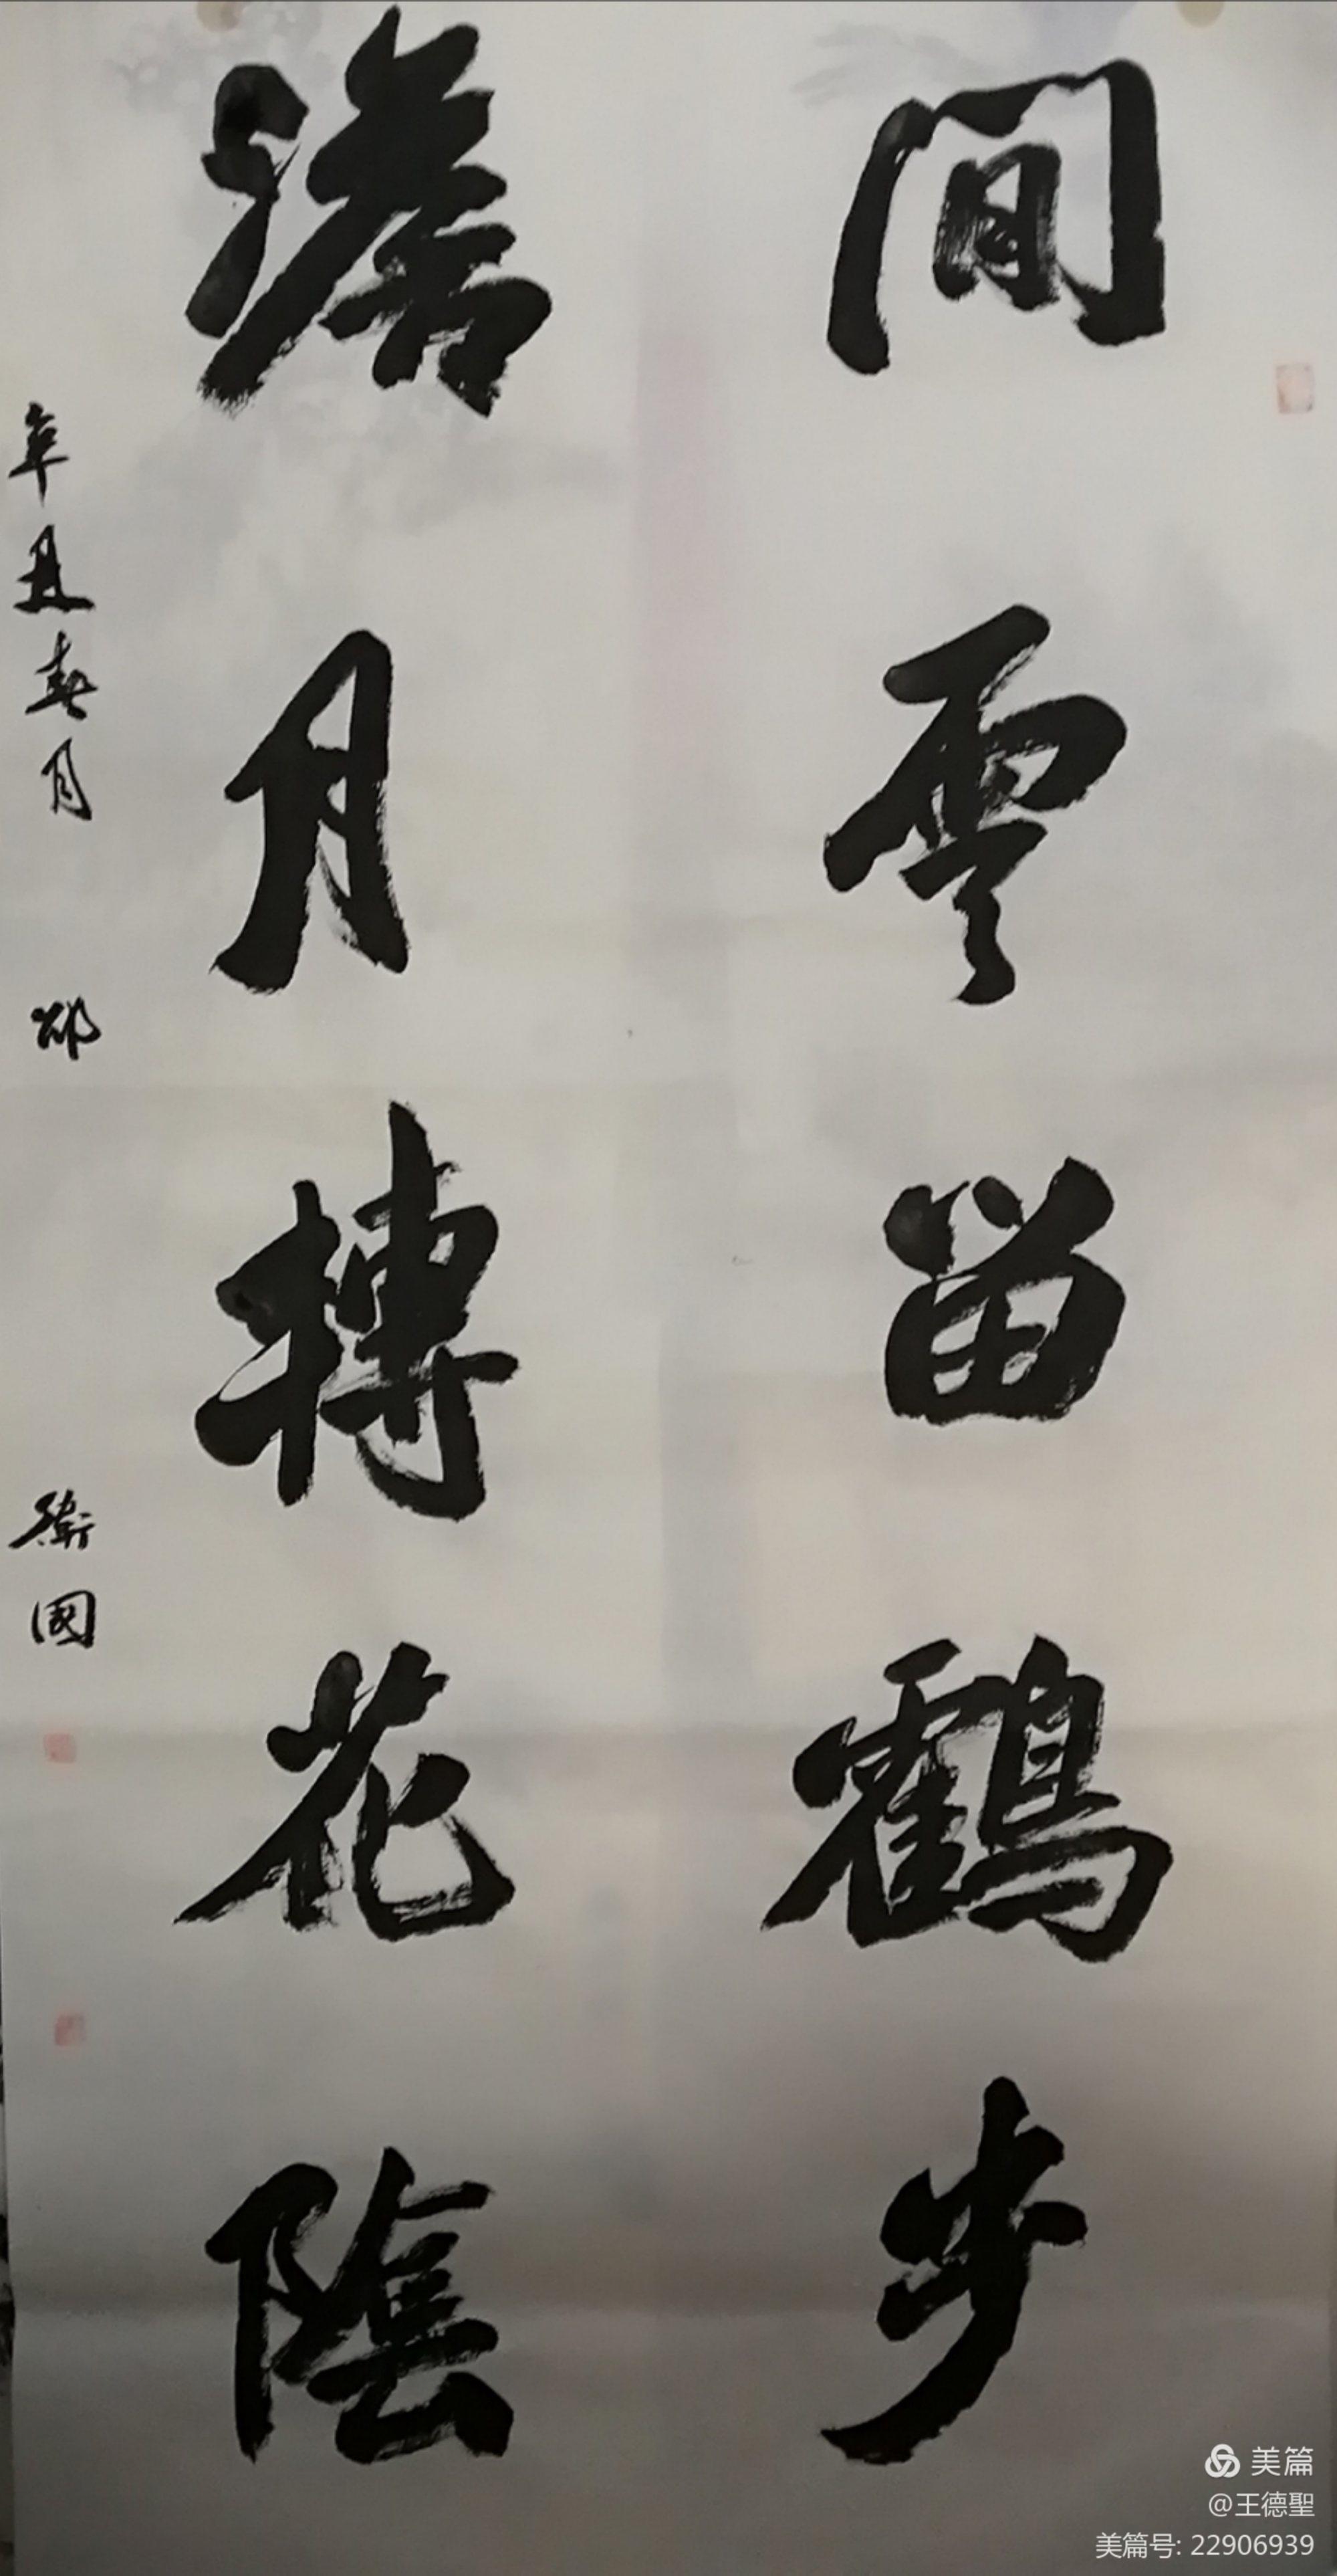 間雲留鶴步
澹月轉花陰
辛丑春月 衛國
美篇
@王德聖
美篇号: 22906939